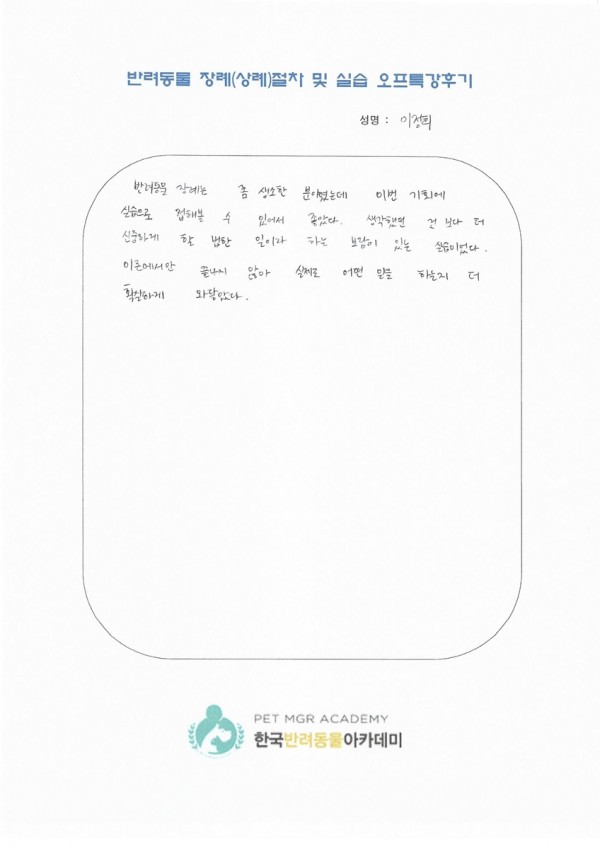 반려동물 장례(상례)절차 및 실습 오프특강후기
성명 : 이정희
반려동물 장례는 좀 생소한 분야였는데 이번 기회에
실습으로 접해볼 수 있어서 좋았다. 생각했던 건 보다 더
신중하게 할 법한 일이라 하는 보람이 있는 실습이었다.
이론에서만 끝나지 않아 실제로 어떤 일을 하는지 더
확실하게 와닿았다.
PET MGR ACADEMY
한국반려동물아카데미